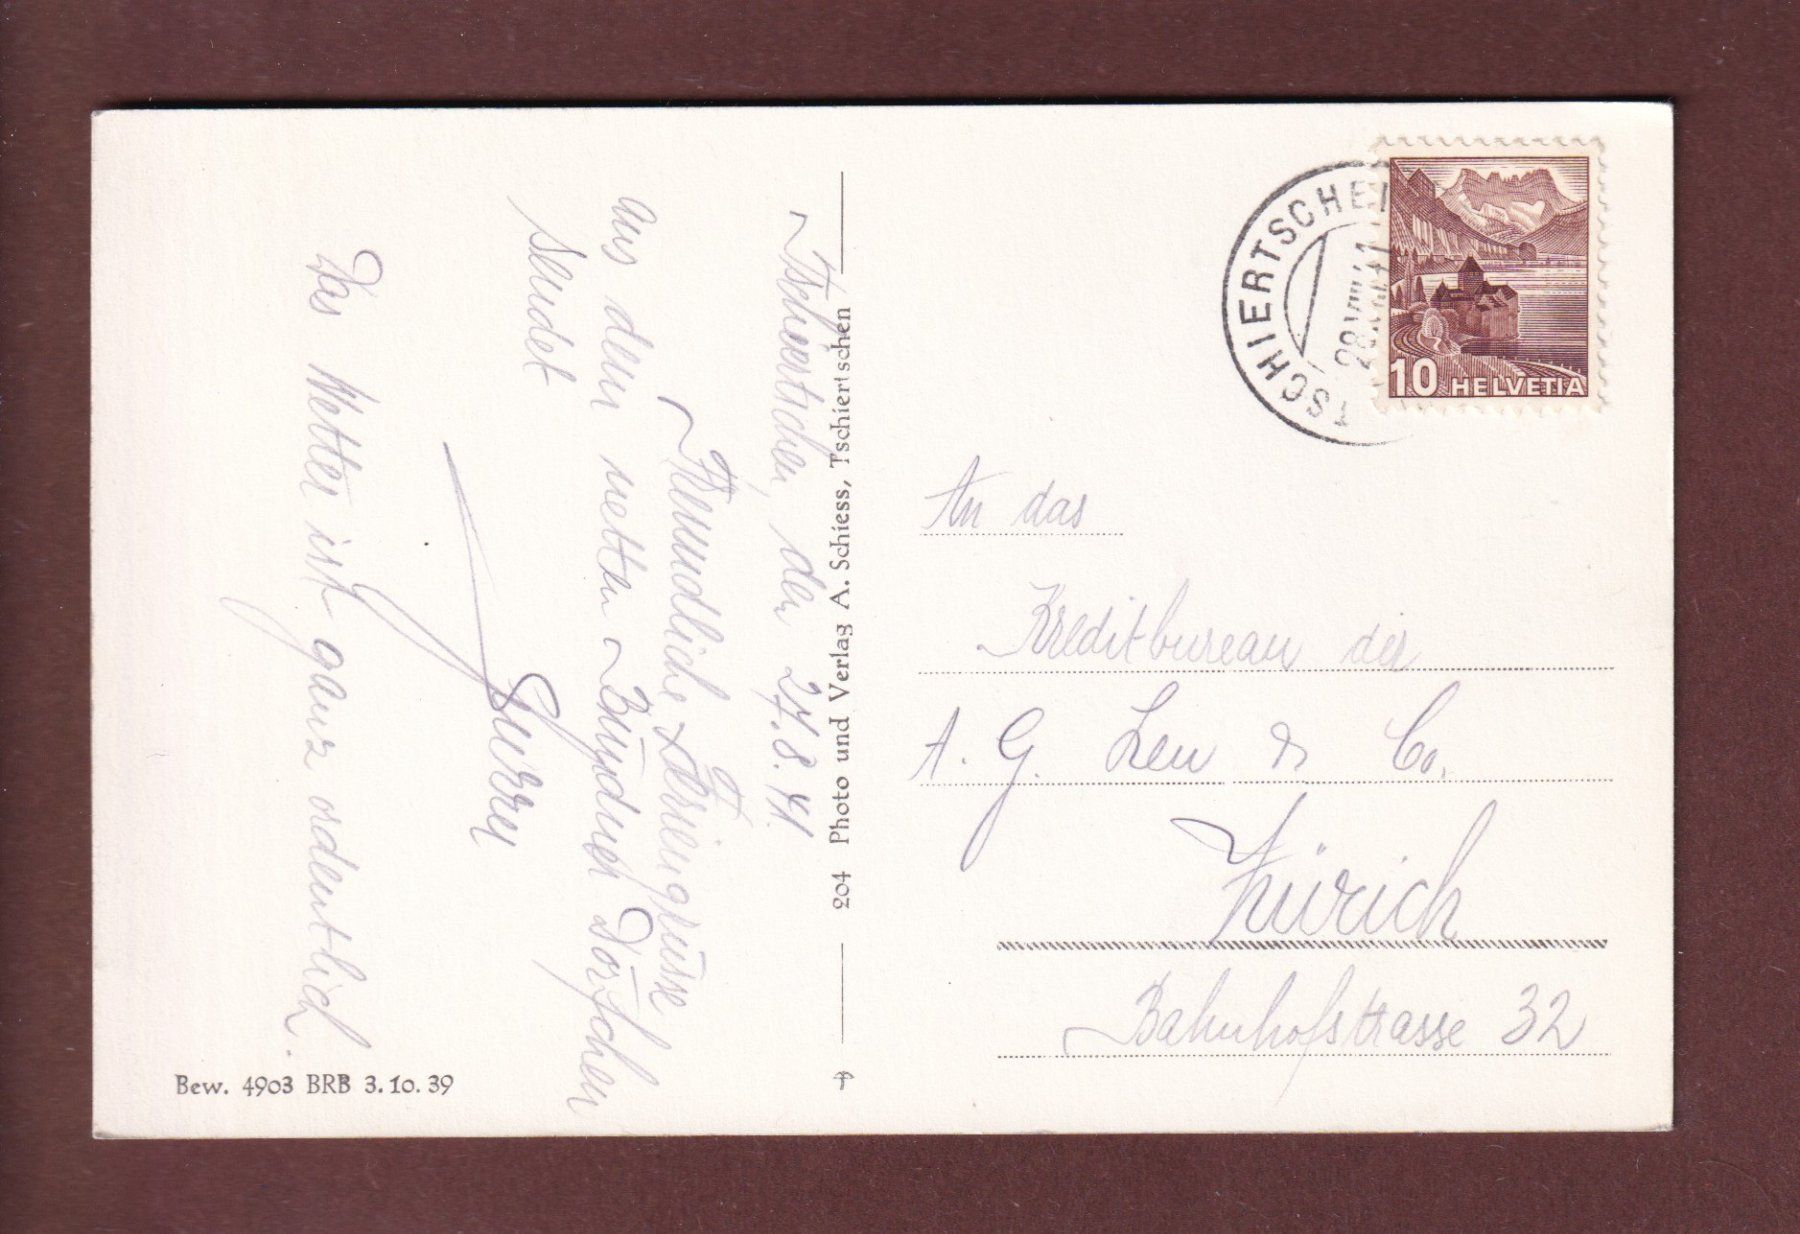 Tschiertschen, den 27.8.41.
Freundliche Feriengrüsse
aus dem netten Bündner Dörfchen
sendet
Das Wetter ist ganz ordentlich.
204 Photo und Verlag A. Schiess, Tschiertschen
Bew. 4903 BRB 3.10.39
TSCHIERTSCHEN
28.VIII.41
10 HELVETIA
An das
Kreditbureau der
A. G. Leu & Co.
Zürich
Bahnhofstrasse 32